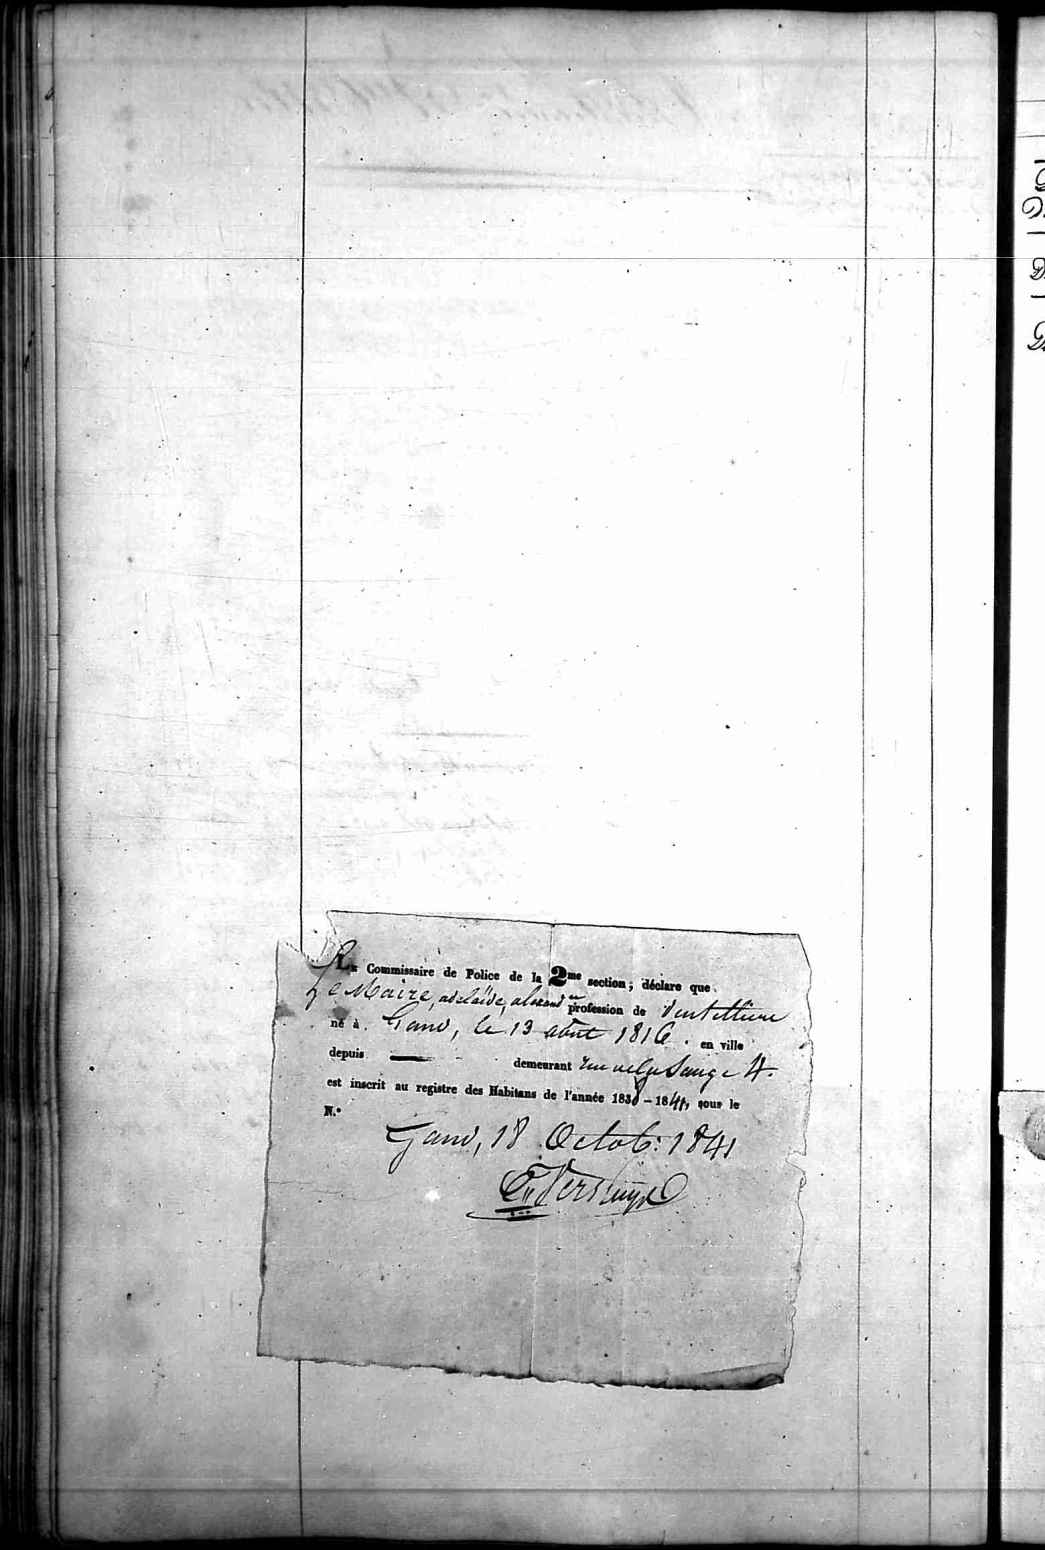 Le Commissaire de Police de la 2me section; déclare que
Le Maire, adelaïde, profession de Dentellière
né à Gand, le 13 août 1816. en ville
depuis — demeurant rue 4.
est inscrit au registre des Habitans de l'année 1838-1841, sous le
N.°
Gand, 18 Octob: 1841